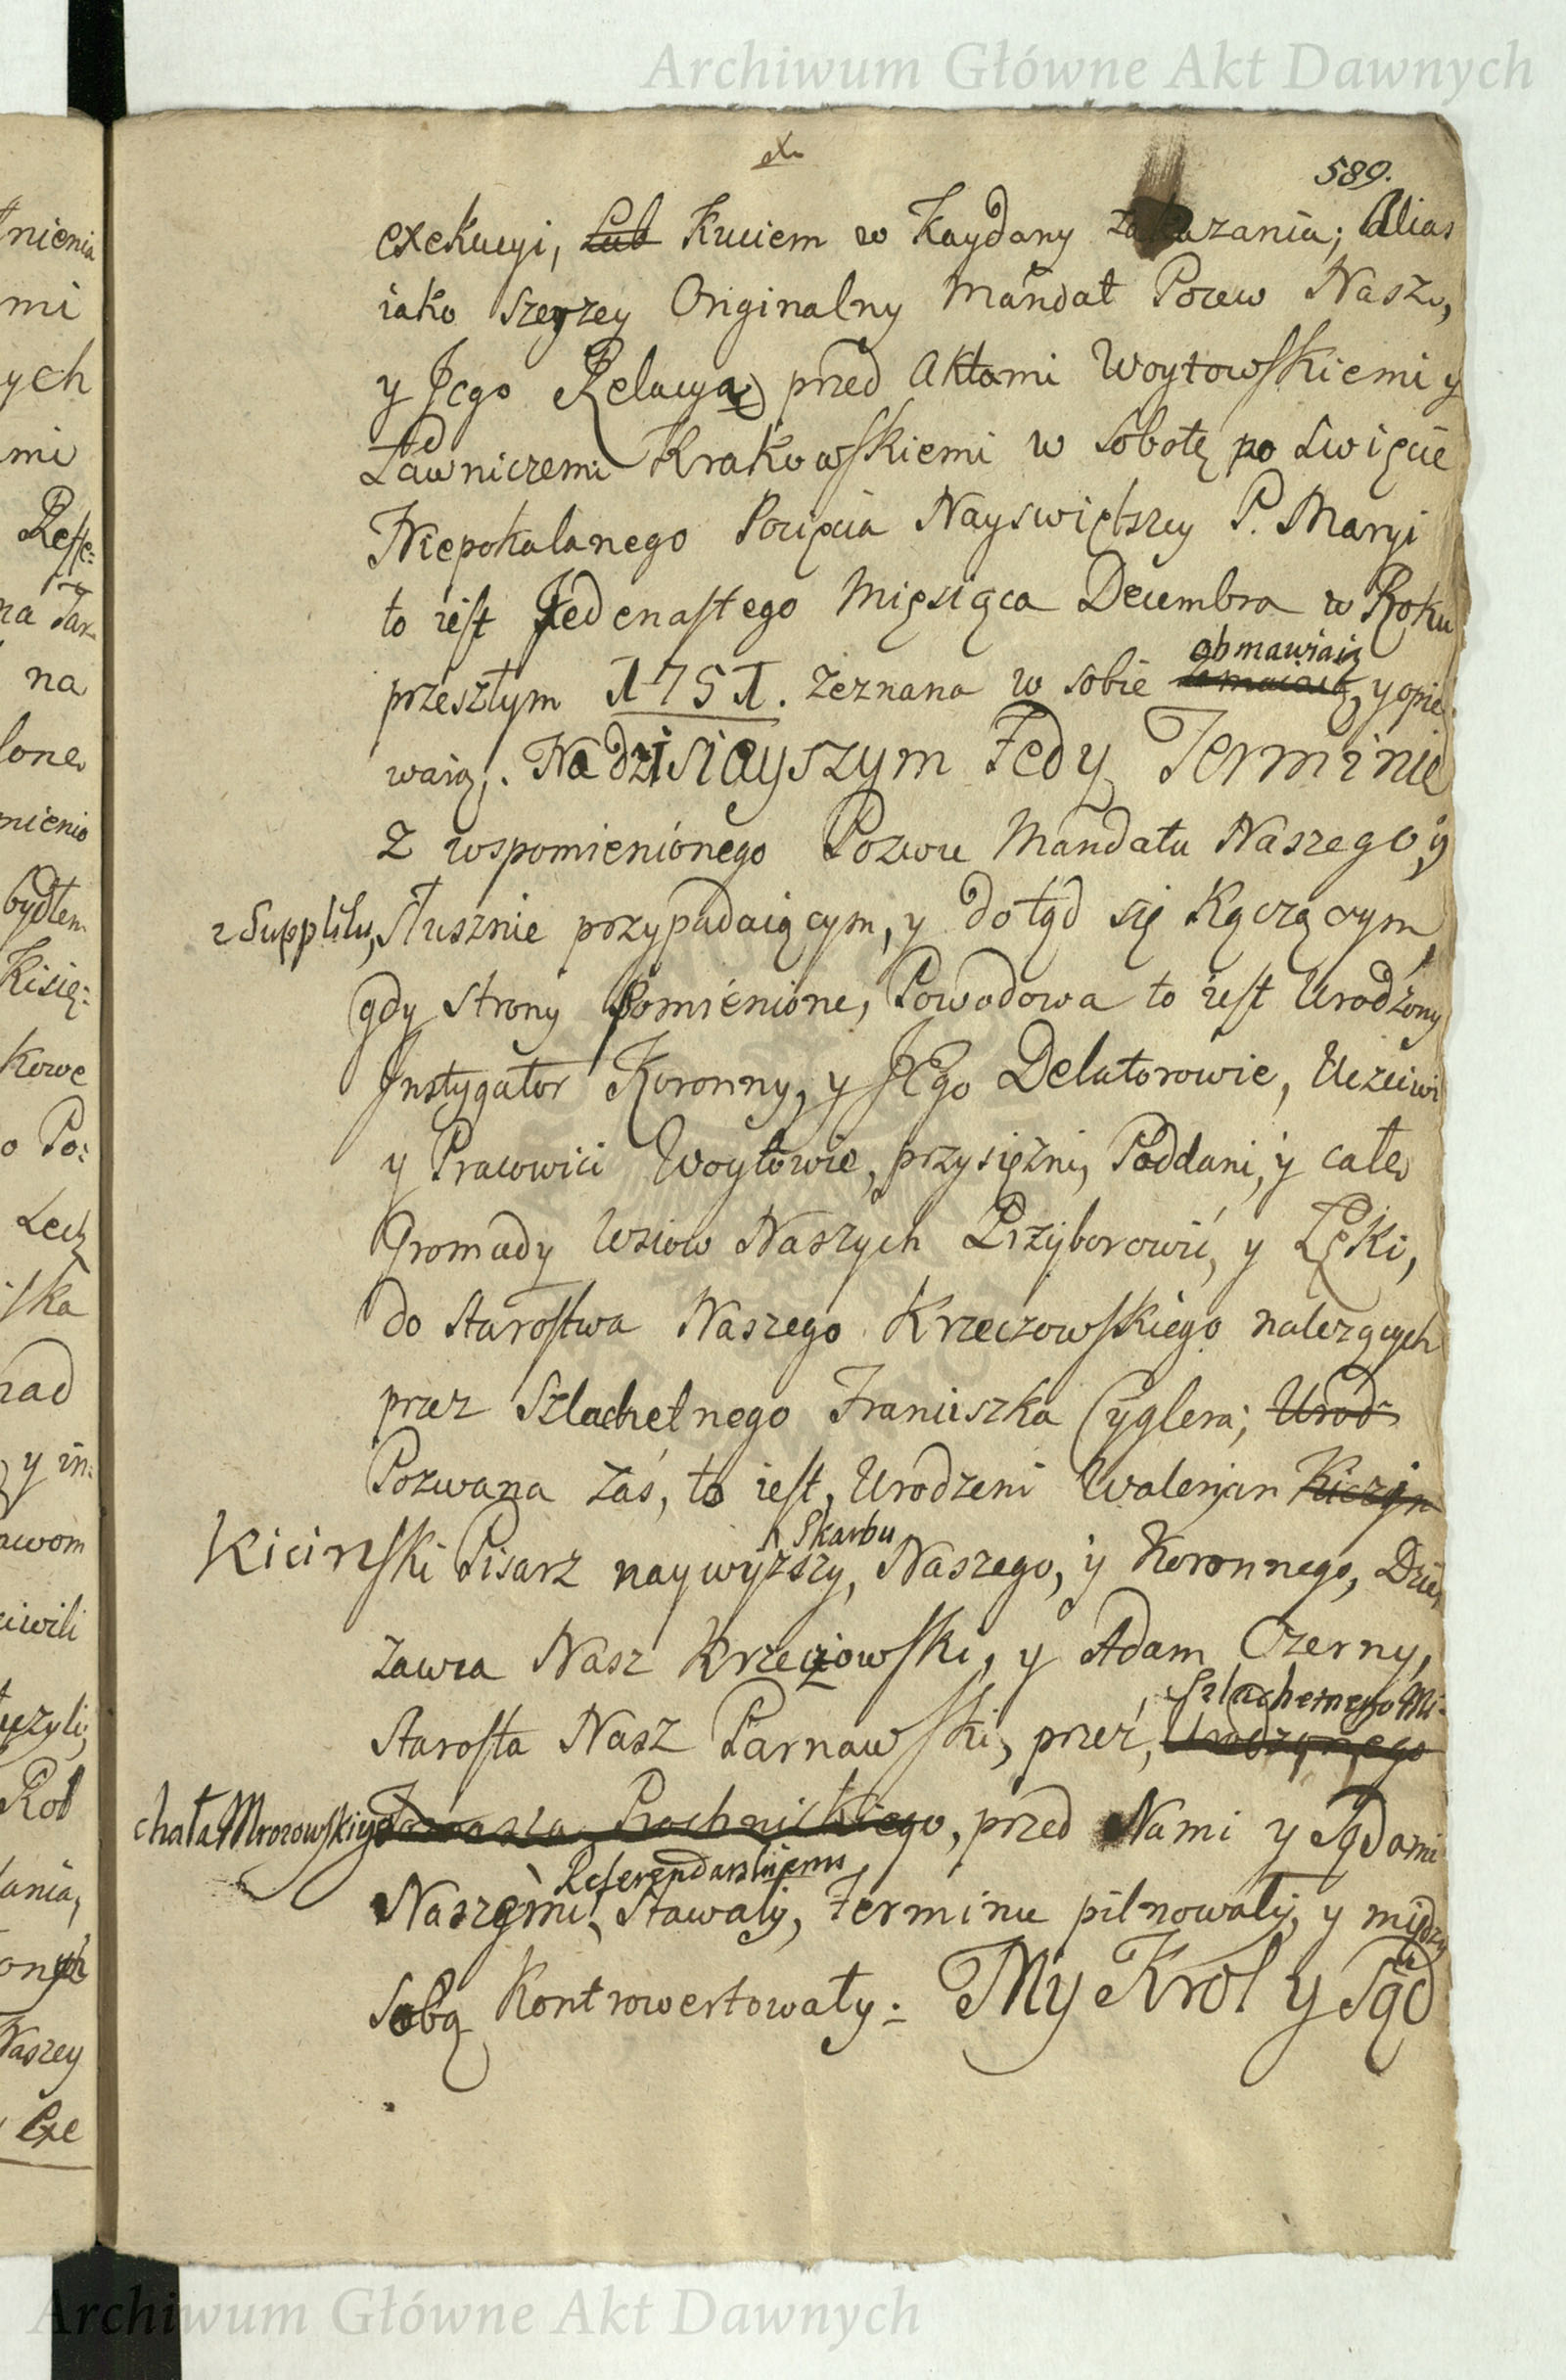 Archiwum Główne Akt Dawnych
589.
exekucyi, Lub Kuciem w Kaydany zakazania; Alias
iako szerzey Originalny Mandat Pozew Nasz,
y Jego Relacya przed Aktami Woytowskiemi y
Ławniczemi Krakowskiemi w Sobotę po Święcie
Niepokalanego Poczęcia Nayswiętszey P. Maryi
to iest Jedenastego Miesiąca Decembra w Roku
obmawiaią
przeszłym 1751. zeznana w sobie y opie
waią. Na dzisieyszym Tedy Terminie
z wspomienionego Pozwu Mandatu Naszego, y
z Supplitu, słusznie przypadaiącym, y dotąd się Kączącym
gdy strony Pomienione, Powodowa to iest Urodzony
Instygator Koronny, y JEgo Delatorowie, Uczciwi
y Pracowici Woytowie, przysiężni, Poddani, y całe
Gromady Wsiow Naszych Przyborowić, y Łęki,
do Starostwa Naszego Krzeczowskiego należących
przez Szlachetnego Franciszka Cyglera; Urod
Pozwana zaś, to iest, Urodzeni Waleryan Kiczyn
Skarbu
Kicinski Pisarz naywyższy, Naszego, y Koronnego, Dzier
zawca Nasz Krzeczowski, y Adam Czerny,
Szlachetnego Mi-
Starosta Nasz Parnawski, przez, Urodzonego
chała Mrozowskiego Tomasza Prochnickiego, przed Nami y Sądami
Referendarskiemi
Naszemi, Stawały, Terminu pilnowały, y między
sobą Kontrowertowały. My Krol y Sąd
Archiwum Główne Akt Dawnych